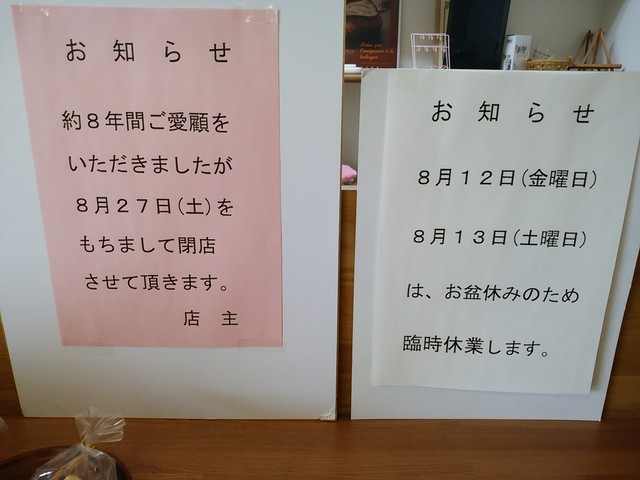 お知らせ
約８年間ご愛顧を
いただきましたが
８月２７日(土)を
もちまして閉店
させて頂きます。
店　主
お知らせ
８月１２日(金曜日)
８月１３日(土曜日)
は、お盆休みのため
臨時休業します。